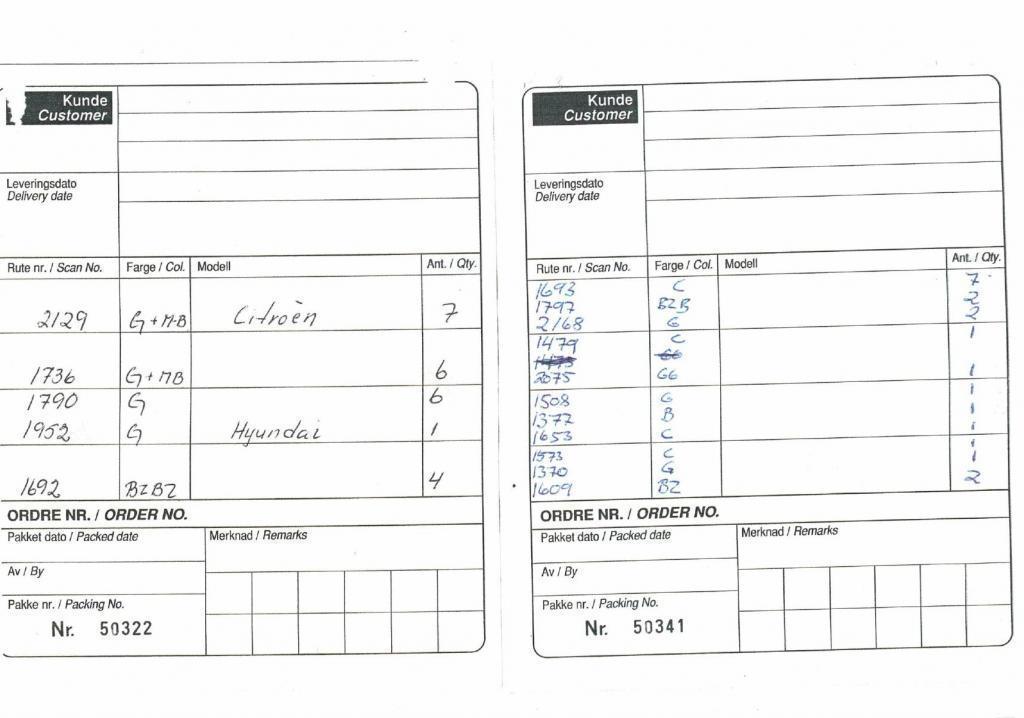 Kunde
Customer
Leveringsdato
Delivery date
Rute nr. / Scan No. Farge / Col. Modell Ant. / Qty.
2129 G + M-B Citroën 7
1736 G + MB 6
1790 G 6
1952 G Hyundai 1
1692 BZBZ 4
ORDRE NR. / ORDER NO.
Pakket dato / Packed date Merknad / Remarks
Av / By
Pakke nr. / Packing No.
Nr. 50322
Kunde
Customer
Leveringsdato
Delivery date
Rute nr. / Scan No. Farge / Col. Modell Ant. / Qty.
1693 C 7
1797 BZB 2
2168 G 2
1479 C 1
2075 GG 1
1508 G 1
1377 B 1
1653 C 1
1573 C 1
1370 G 1
1609 BZ 2
ORDRE NR. / ORDER NO.
Pakket dato / Packed date Merknad / Remarks
Av / By
Pakke nr. / Packing No.
Nr. 50341